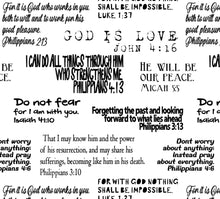 For it is God who works in you,
both to will and to work for his
good pleasure.
Philippians 2:13
SHALL BE IMPOSSIBLE.
LUKE 1:37
For it is God who works in
both to will and to work for
good pleasure.
Philippians
GOD IS LOVE
JOHN 4:16
I CAN DO ALL THINGS THROUGH HIM
WHO STRENGTHENS ME.
PHILIPPIANS 4:13
BE
CE.
HE WILL BE
OUR PEACE.
MICAH 5:5
Do not fear
for I am with you.
Isaiah 41:10
Forgetting the past and looking
forward to what lies ahead
Philippians 3:13
Do no
for I am
Isaiah
Dont worry
about anything
Instead pray
about everything.
Philippians 4:6
That I may know him and the power
of his resurrection, and may share his
sufferings, becoming like him in his death.
Philippians 3:10
Dont worry
about anything
Instead pray
about everything.
Philippians 4:6
For it is God who works in you,
FOR WITH GOD NOTHING
SHALL BE IMPOSSIBLE.
LUKE 1:37
For it is God who works in